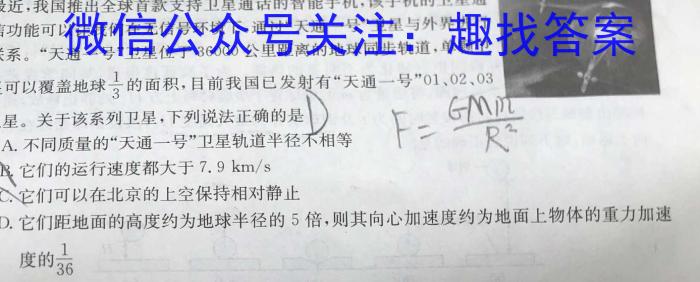 最近,我国推出全球首款支持卫星通话的智能手机,该手机的卫星通
信功能可以
卫星与外界
微信公众号关注:趣找答案
联系。“天通一号”卫星位于36000公里距离的地球同步轨道,单
可以覆盖地球1/3的面积,目前我国已发射有“天通一号”01、02、03
星。关于该系列卫星,下列说法正确的是 D
F=GMm/R²
A. 不同质量的“天通一号”卫星轨道半径不相等
B. 它们的运行速度都大于 7.9 km/s
C. 它们可以在北京的上空保持相对静止
D. 它们距地面的高度约为地球半径的 5 倍,则其向心加速度约为地面上物体的重力加速
度的1/36